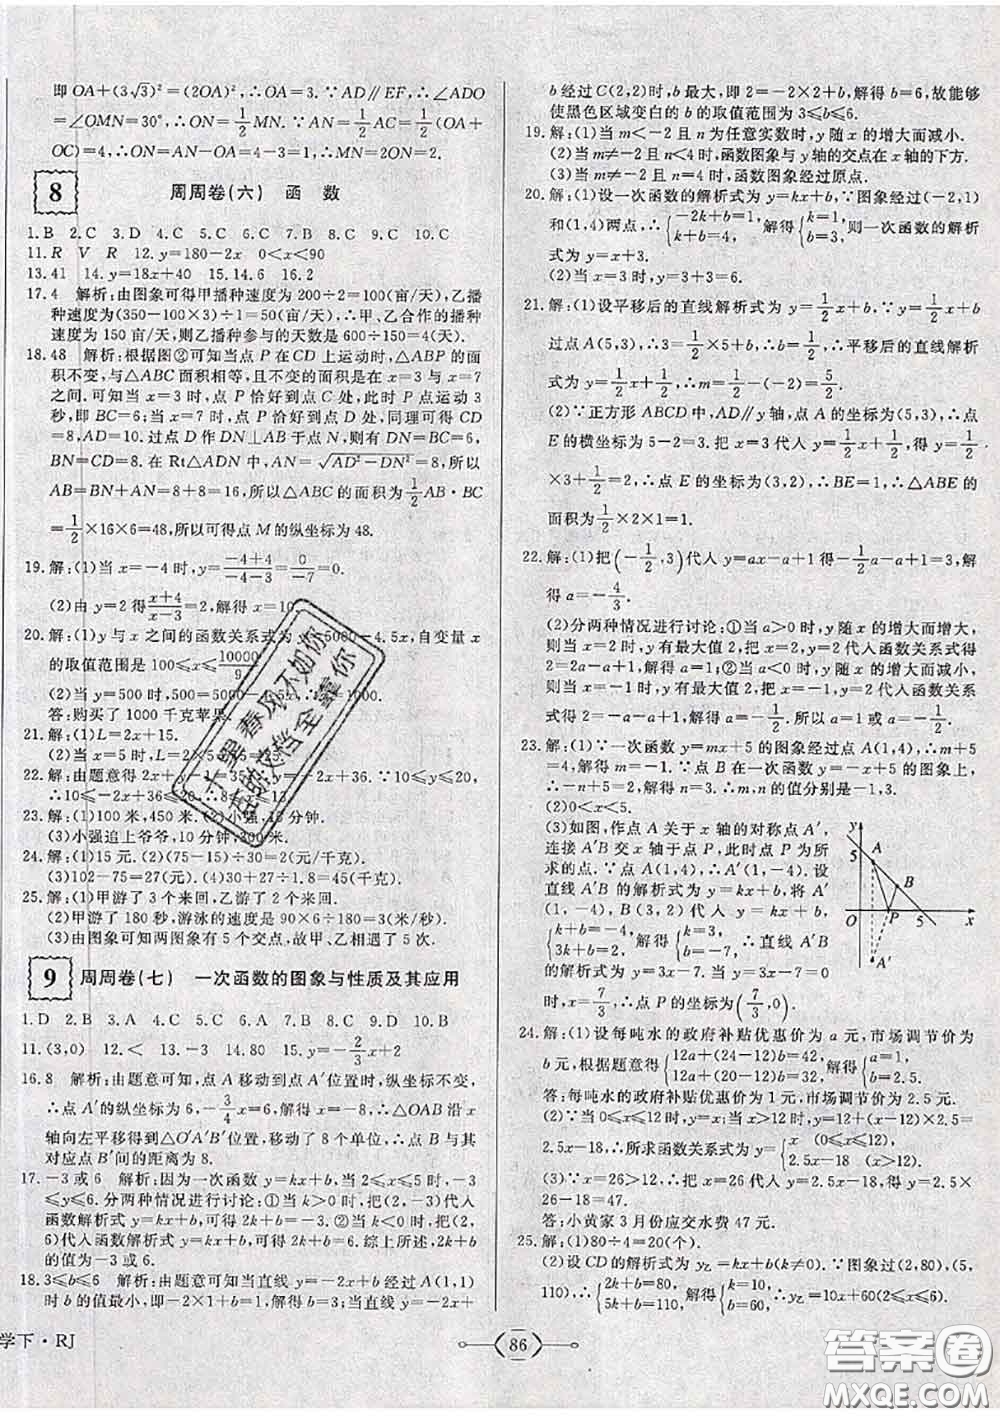 即 OA+(3√3)²=(2OA)²,∴OA=3.∵AD∥EF,∴∠ADO
=∠OMN=30°,∴ON=1/2MN.∵AN=1/2AC=1/2(OA+
OC)=4,∴ON=AN-OA=4-3=1,∴MN=2ON=2.
8 周周卷(六) 函 数
1.B 2.C 3.D 4.C 5.C 6.C 7.B 8.C 9.D 10.C
11.R V R 12.y=180-2x 0<x<90
13.41 14.y=18x+40 15.14.6 16.2
17.4 解析:由图象可得甲播种速度为 200÷2=100(亩/天),乙播
种速度为(350-100×3)÷1=50(亩/天),∴甲、乙合作的播种
速度为 150 亩/天,则乙播种参与的天数是 600÷150=4(天).
18.48 解析:根据图②可知当点 P 在 CD 上运动时,△ABP 的面
积不变,与△ABC 面积相等,且不变的面积是在 x=3 与 x=7
之间.可知当 x=3 时,点 P 恰好到点 C 处,此时 P 点运动 3
秒,即 BC=6;当 x=7 时,点 P 恰好到点 D 处,同理可得 CD
=8,AD=10.过点 D 作 DN⊥AB 于点 N,则有 DN=BC=6,
BN=CD=8.在 Rt△ADN 中,AN=√(AD²-DN²)=8,所以
AB=BN+AN=8+8=16,所以△ABC 的面积为1/2AB·BC
=1/2×16×6=48,所以可得点 M 的纵坐标为 48.
19.解:(1)当 x=-4 时,y=(-4+4)/(-4-3)=0/-7=0.
(2)由 y=2 得(x+4)/(x-3)=2,解得 x=10.
20.解:(1)y 与 x 之间的函数关系式为 5000-4.5x,自变量 x
的取值范围是 100≤x≤10000/9
(2)当 y=500 时,500=5000 ,x=1000.
答:购买了 1000 千克苹果.
21.解:(1)L=2x+15.
(2)当 x=5 时,L=2×5
22.解:由题意得 2x+y-1=35 ∵10≤y≤20,
∴10≤-2x+36≤20,∴8≤
23.解:(1)100 米,450 米.(2)小强,15 分钟.
(3)小强追上爷爷,10 分钟,300 米.
24.解:(1)15 元.(2)(75-15)÷30=2(元/千克).
(3)102-75=27(元).(4)30+27÷1.5=48(千克).
25.解:(1)甲游了 3 个来回,乙游了 2 个来回.
(2)甲游了 180 秒,游泳的速度是 90×6÷180=3(米/秒).
(3)由图象可知两图象有 5 个交点,故甲、乙相遇了 5 次.
9 周周卷(七) 一次函数的图象与性质及其应用
1.D 2.B 3.A 4.C 5.A 6.A 7.B 8.C 9.D 10.B
11.(3,0) 12.< 13.-3 14.80 15.y=-2/3x+2
16.8 解析:由题意可知,点 A 移动到点 A′位置时,纵坐标不变,
∴点 A′的纵坐标为 6,-3/4x=6,解得 x=-8,∴△OAB 沿 x
轴向左平移得到△O′A′B′位置,移动了 8 个单位,∴点 B 与其
对应点 B′间的距离为 8.
17.-3或6 解析:因为一次函数 y=kx+b,当 2≤x≤5 时,-3
≤y≤6.分两种情况进行讨论:①当 k>0 时,把(2,-3)代入
函数解析式 y=kx+b,可得 2k+b=-3.②当 k<0 时,把(2,
6)代入函数解析式 y=kx+b,可得 2k+b=6.综上所述,2k+b
的值为-3 或 6.
18.3≤b≤6 解析:由题意可知当直线 y=-2x+b 经过 A(1,1)
时 b 的值最小,即-2×1+b=1,解得 b=3;当直线 y=-2x+
b 经过 C(2,2)时,b 最大,即 2=-2×2+b,解得 b=6,故能够
使黑色区域变白的 b 的取值范围为 3≤b≤6.
19.解:(1)当 m<-2 且 n 为任意实数时,y 随 x 的增大而减小.
(2)当 m≠-2 且 n<4 时,函数图象与 y 轴的交点在 x 轴的下方.
(3)当 m≠-2 且 n=4 时,函数图象过原点.
20.解:(1)设一次函数的解析式为 y=kx+b,∵图象经过(-2,1)
和(1,4)两点,∴{-2k+b=1, k+b=4, 解得{k=1, b=3, 则一次函数的解析
式为 y=x+3.
(2)当 x=3 时,y=3+3=6.
21.解:(1)设平移后的直线解析式为 y=1/2x+b,∵y=1/2x+b
过点 A(5,3),∴3=1/2×5+b,∴b=1/2,∴平移后的直线解析
式为 y=1/2x+1/2,∴m=1/2-(-2)=5/2.
(2)∵正方形 ABCD 中,AD∥y 轴,点 A 的坐标为(5,3),∴点
E 的横坐标为 5-2=3.把 x=3 代入 y=1/2x+1/2,得 y=1/2
×3+1/2=2,∴点 E 的坐标为(3,2),∴BE=1,∴△ABE 的
面积为1/2×2×1=1.
22.解:(1)把(-1/2,3)代入 y=ax-a+1得-1/2a-a+1=3,解
得 a=-4/3.
(2)分两种情况进行讨论:①当 a>0 时,y 随 x 的增大而增大,
则当 x=2 时,y 有最大值 2,把 x=2,y=2 代入函数关系式得
2=2a-a+1,解得 a=1;②当 a<0 时,y 随 x 的增大而减小,
则当 x=-1 时,y 有最大值 2,把 x=-1,y=2 代入函数关系
式得 2=-a-a+1,解得 a=-1/2.所以 a=1 或 a=-1/2.
23.解:(1)∵一次函数 y=mx+5 的图象经过点 A(1,4),∴m+5
=4,解得 m=-1.∵点 B 在一次函数 y=-x+5 的图象上,
∴-n+5=2,解得 n=3.∴m,n 的值分别是-1,3.
(2)0<x<5.
(3)如图,作点 A 关于 x 轴的对称点 A′,
连接 A′B 交 x 轴于点 P,此时 PA+PB
的值最小.∵A(1,4),∴A′(1,-4).设
直线 A′B 的解析式为 y=kx+b,将 A′
(1,-4),B(3,2)代入 y=kx+b,得
{k+b=-4, 3k+b=2, 解得{k=3, b=-7, ∴直线 A′B
的解析式为 y=3x-7.令 y=0,得 3x-7=0,解得
x=7/3,∴点 P 的坐标为(7/3,0).
y 5 A B O P 5 x A′
24.解:(1)设每吨水的政府补贴优惠价为 a 元,市场调节价为
b 元.根据题意得{12a+(24-12)b=42, 12a+(20-12)b=32, 解得{a=1, b=2.5.
答:每吨水的政府补贴优惠价为 1 元,市场调节价为 2.5 元.
(2)∵当 0≤x≤12 时,y=x;当 x>12 时,y=12+(x-12)×2.5=
2.5x-18,∴所求函数关系式为 y={x (0≤x≤12), 2.5x-18 (x>12).
(3)∵x=26>12,∴把 x=26 代入 y=2.5x-18,得 y=2.5×
26-18=47(元).
答:小黄家 3 月份应交水费 47 元.
25.解:(1)80÷4=20(个).
(2)设 CD 的解析式为 y乙=kx+b(k≠0).∵图象过(2,80),(5,
110),∴{2k+b=80, 5k+b=110, 解得{k=10, b=60, ∴y乙=10x+60(2≤x
十里春风不如你
查的这档全靠你
学下·RJ
86
答案圈
MXQE.COM